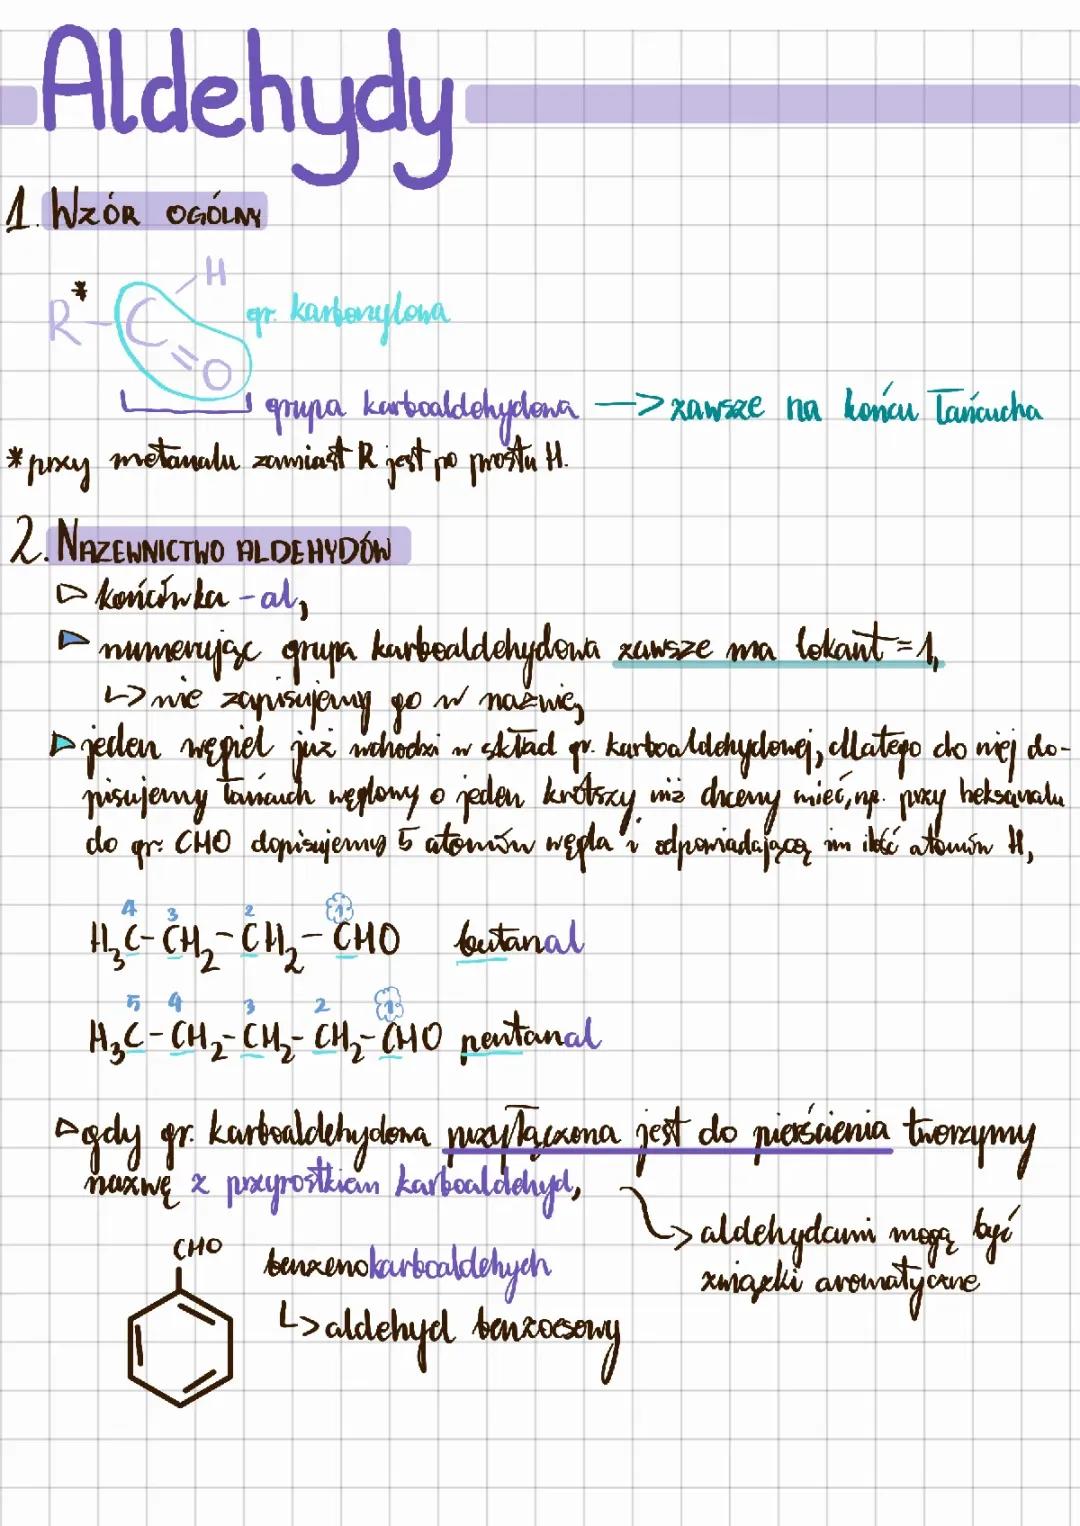 Aldehydy
1. WZÓR OGÓLNY
R* - C - H
=O
gr. karbonylowa
grupa karboaldehydowa —> zawsze na końcu łańcucha
* przy metanalu zamiast R jest po prostu H.
2. NAZEWNICTWO ALDEHYDÓW
▷ końcówka -al,
▷ numerując grupa karboaldehydowa zawsze ma lokant = 1,
↳ nie zapisujemy go w nazwie,
▷ jeden węgiel już wchodzi w skład gr. karboaldehydowej, dlatego do niej do-
pisujemy łańcuch węglowy o jeden krótszy niż chcemy mieć, np. przy heksanalu
do gr. CHO dopisujemy 5 atomów węgla i odpowiadającą im ilość atomów H,
4 3 2 1
H₃C-CH₂-CH₂-CHO butanal
5 4 3 2 1
H₃C-CH₂-CH₂-CH₂-CHO pentanal
▷ gdy gr. karboaldehydowa przyłączona jest do pierścienia tworzymy
nazwę z przyrostkiem karboaldehyd,
↳ aldehydami mogą być
związki aromatyczne
CHO
benzenokarboaldehych
↳ aldehyd benzoesowy